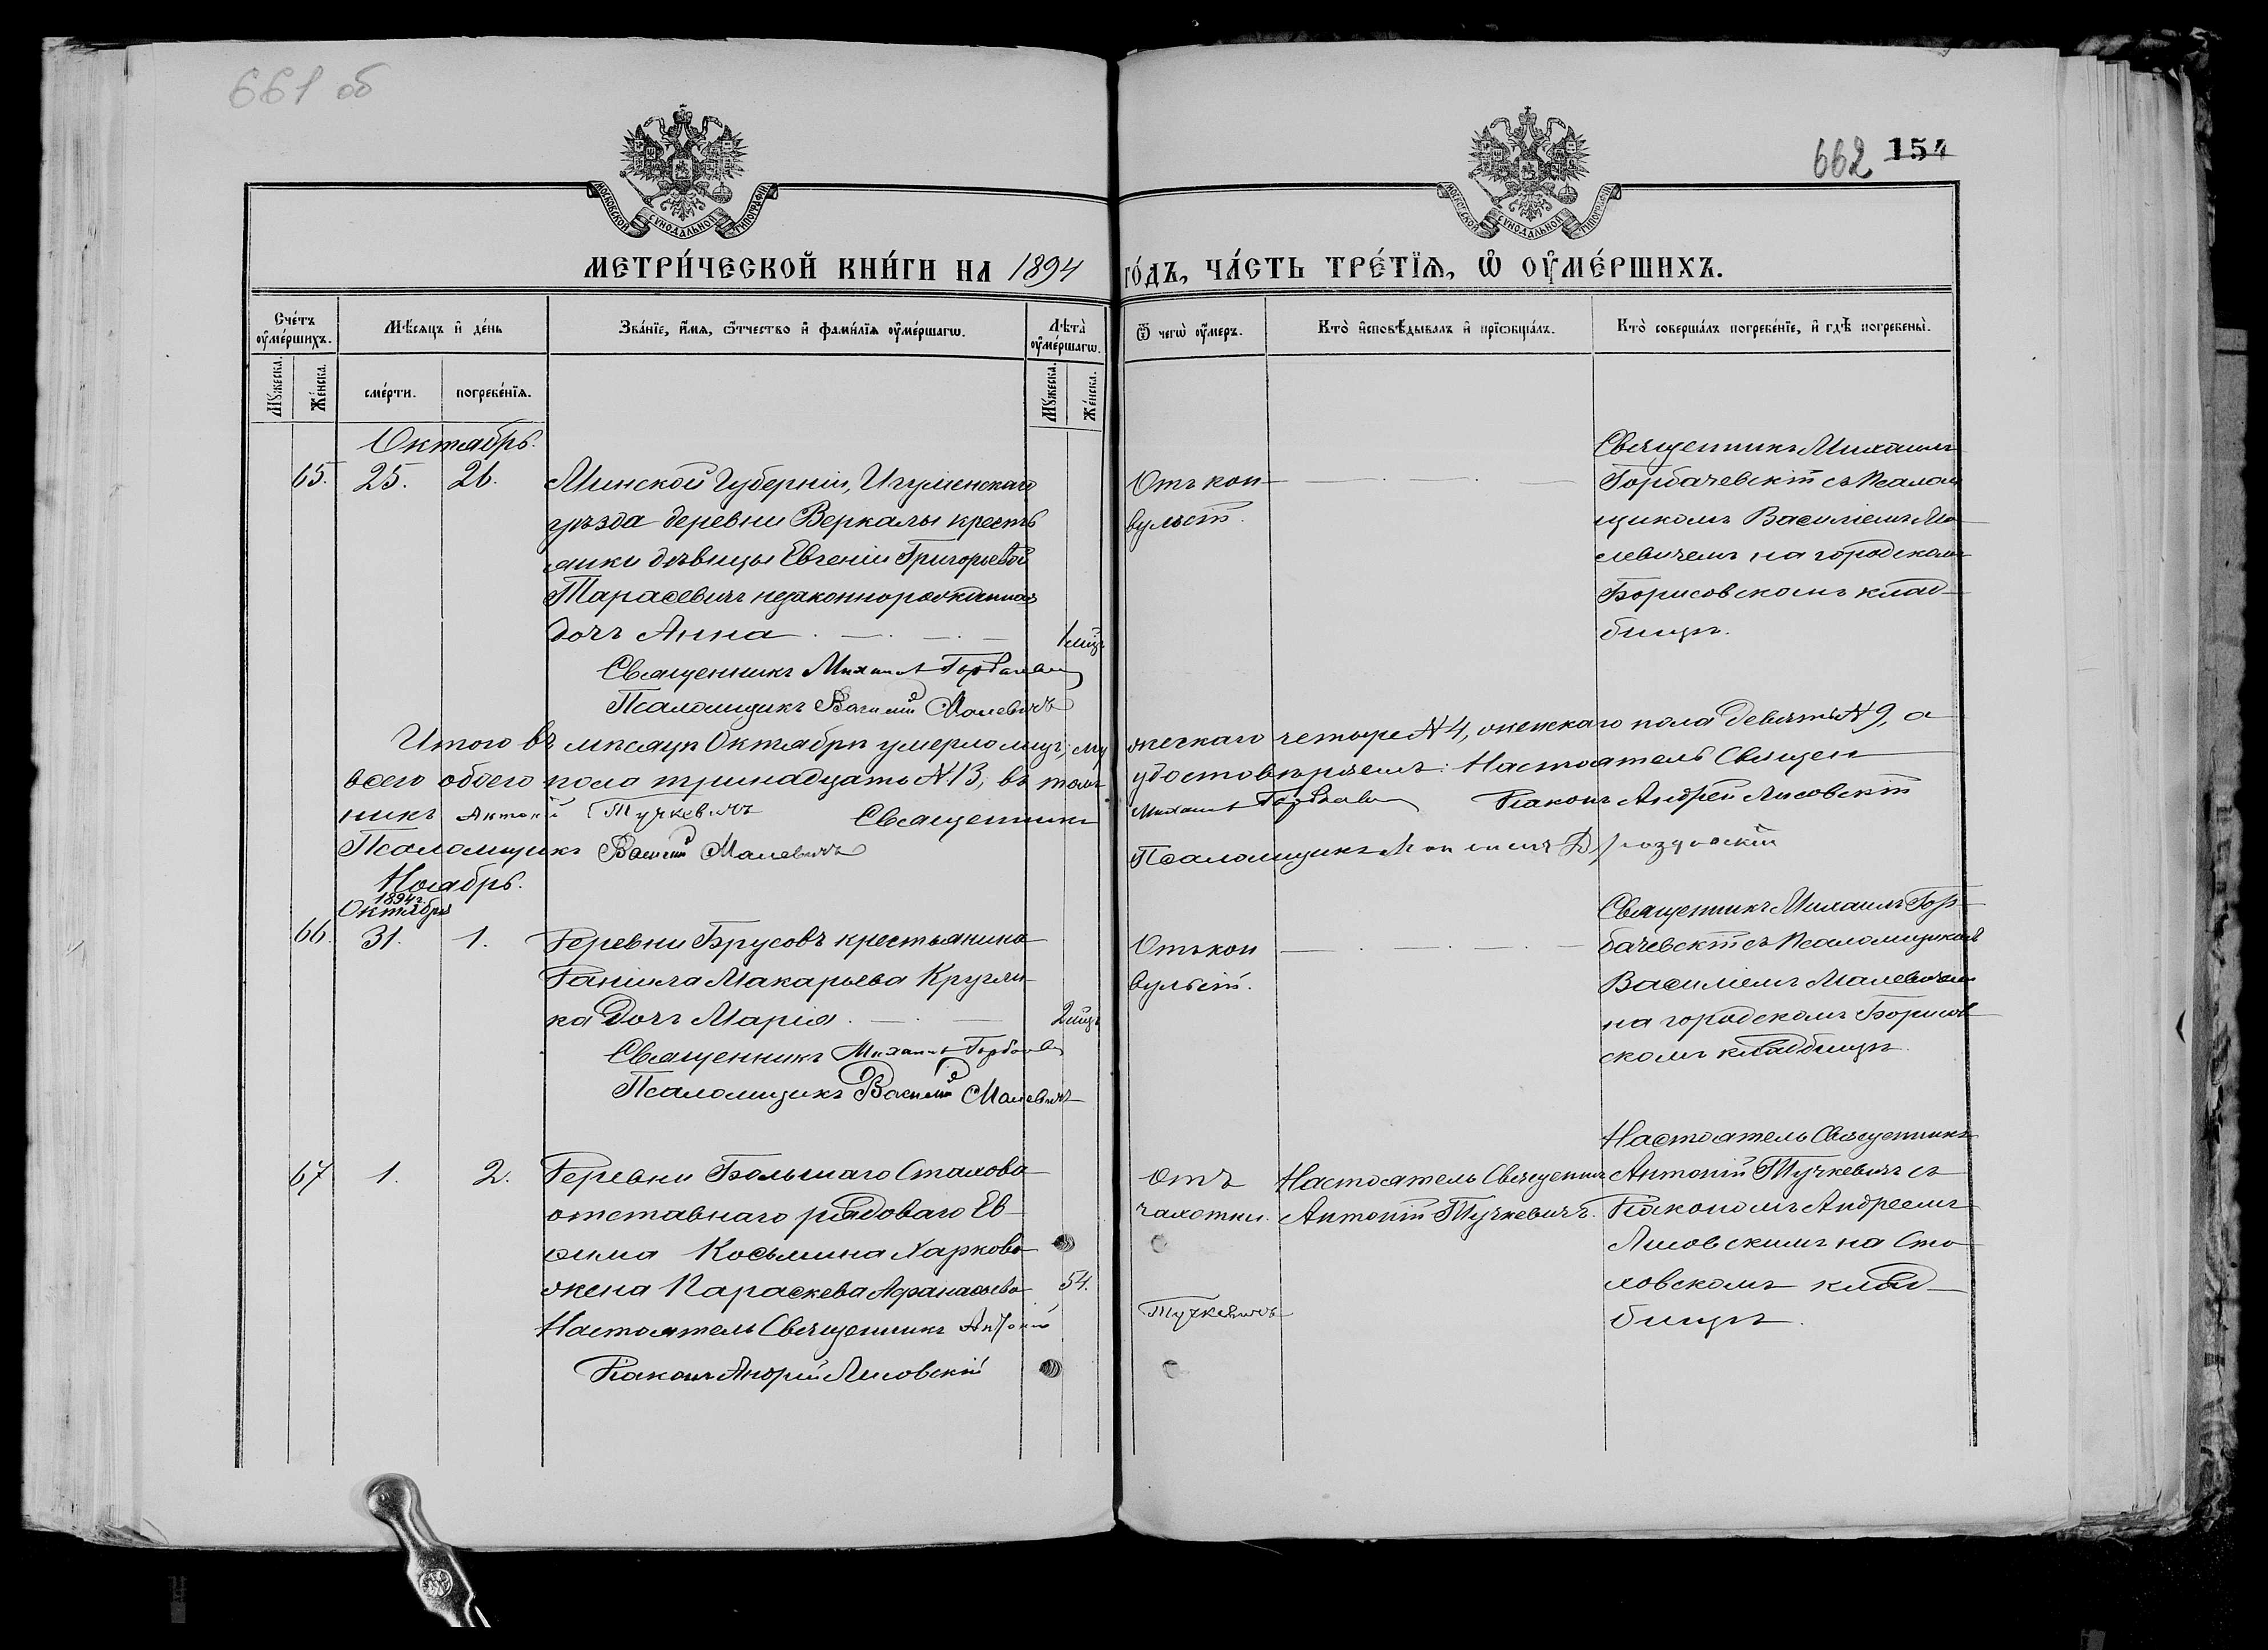 661 об
662 154
МОСКОВСКОЙ СУНОДАЛЬНОЙ ТИПОГРАФІИ
МОСКОВСКОЙ СУНОДАЛЬНОЙ ТИПОГРАФІИ
МЕТРИ́ЧЕСКОЙ КНИ́ГИ НА 1894 ГО́ДЪ, ЧА́СТЬ ТРЕ́ТЇѦ, Ѡ҆ ОУ҆МЕ́РШИХЪ.
Сче́тъ оу҆ме́ршихъ.
Мѣ́сяцъ и҆ де́нь
Зва́нїе, и҆́мѧ, ѻ҆́тчество и҆ фами́лїѧ оу҆ме́ршагѡ.
Лѣ́та оу҆ме́ршагѡ.
Ѿ чегѡ̀ оу҆́меръ.
Кто̀ и҆сповѣ́дывалъ и҆ прїѡбща́лъ.
Кто̀ соверша́лъ погребе́нїе, и҆ гдѣ̀ погребены̀.
Мꙋ́жеска.
Же́нска.
сме́рти.
погребе́нїѧ.
Мꙋ́жеска.
Же́нска.
Октябрь.
65. 25. 26.
Минской Губерніи, Игуменскаго
уѣзда деревни Веркалы кресть
янки дѣвицы Евгеніи Григорьевой
Тарасевичъ незаконнорожденная
дочь Анна
1 мѣц.
Священникъ Михаилъ Горбачевскій
Псаломщикъ Василій Малевичъ
Отъ кон-
вульсій.
Священникъ Михаилъ
Горбачевскій съ Псалом
щикомъ Василіемъ Ма-
левичемъ на городскомъ
Борисовскомъ клад-
бищѣ.
Итого въ мѣсяцѣ Октябрѣ умерло лицъ, му жескаго четыре № 4, женскаго пола девять № 9, а
всего обоего пола тринадцать № 13, въ томъ удостовѣряемъ: Настоятель Священ
никъ Антоній Тучкевичъ Священникъ Михаилъ Горбачев Діаконъ Андрей Лисовскій
Псаломщикъ Василій Малевичъ Псаломщикъ Дроздовскій
Ноябрь.
1894 г.
Октября
66. 31. 1.
Деревни Брусовъ крестьянина
Даніила Макарьева Кругли-
ка дочь Марія
2 мѣц.
Священникъ Михаилъ Горбачев
Псаломщикъ Василій Малевичъ
Отъ кон
вульсій.
Священникъ Михаилъ Гор-
бачевскій съ Псаломщикомъ
Василіемъ Малевичемъ
на городскомъ Борисов
скомъ кладбищѣ.
67 1. 2.
Деревни Большаго Стахова
отставнаго рядоваго Ев-
фима Косьмина Харкова
жена Параскева Афанасьева
54.
Настоятель Священникъ Антоній Тучкевичъ
Діаконъ Андрей Лисовскій
Отъ
чахотки.
Настоятель Священникъ
Антоній Тучкевичъ.
Настоятель Священникъ
Антоній Тучкевичъ съ
Діакономъ Андреемъ
Лисовскимъ на Ста-
ховскомъ клад-
бищѣ.